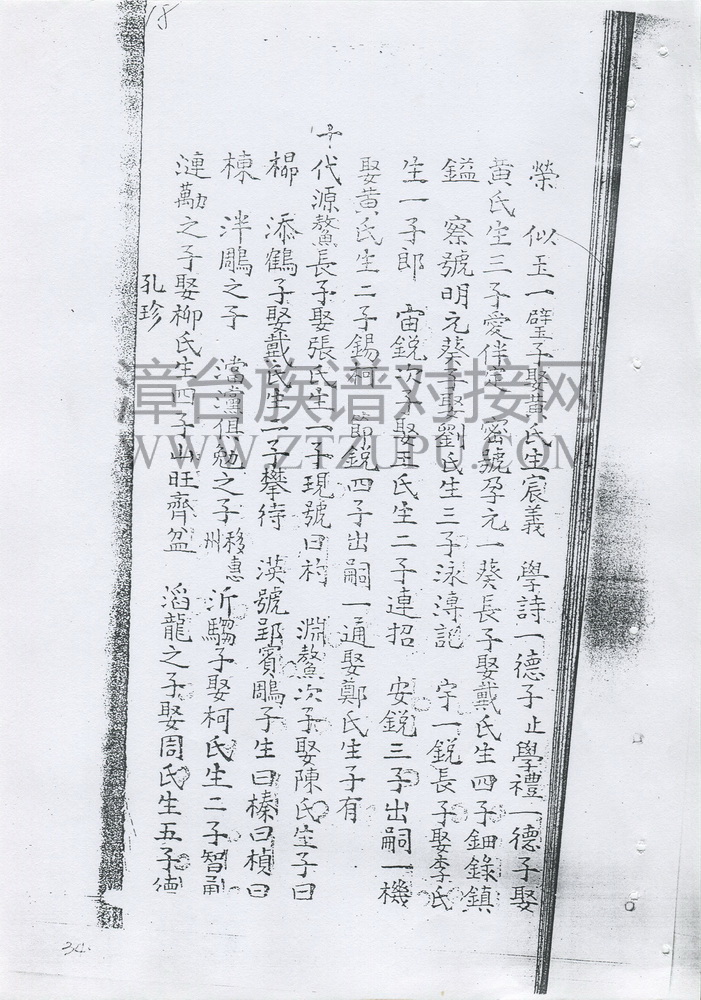 18
榮 似玉一璧子娶黄氏生宸義 學詩一德子止學禮一德子娶
黄氏生三子愛伴寔 密號孕元一葵長子娶戴氏生四子鈿錄鎮
鎰 察號明元葵子娶劉氏生三子泳溥記 宇一銳長子娶李氏
生一子郎 宙銳次子娶王氏生二子連招 安銳三子出嗣一機
娶黄氏生二子錫柯 節銳四子出嗣一通娶鄭氏生子有
十代源鰲長子娶張氏生一子現號曰杓 淵鰲次子娶陳氏生子曰
楊 添鶴子娶戴氏生二子攀待 渶號郢賓鵰子生曰榛曰楨曰
棟 泮鵰之子 澢灙俱勉之子移惠州 沂騶子娶柯氏生二子智勇
漣勱之子娶柳氏生四子山旺齊盆 滔龍之子娶周氏生五子德
孔珍
34
漳台族谱对接网
WWW.ZTZUPU.COM